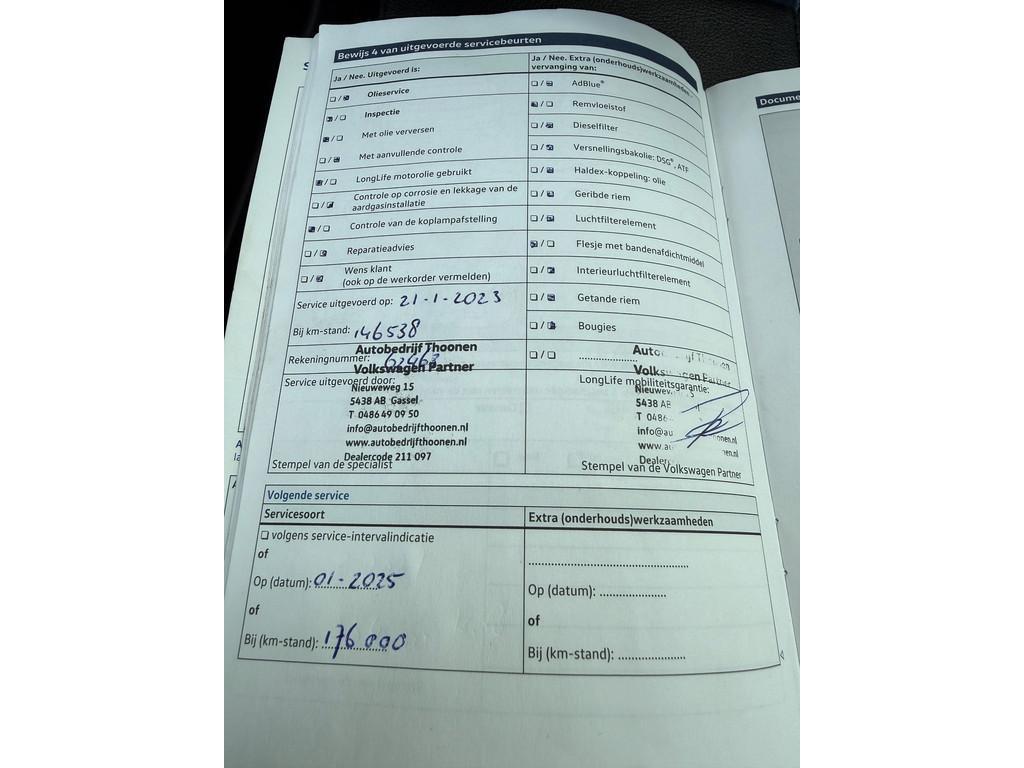 Bewijs 4 van uitgevoerde servicebeurten
Ja / Nee. Uitgevoerd is:
Olieservice
Inspectie
Met olie verversen
Met aanvullende controle
LongLife motorolie gebruikt
Controle op corrosie en lekkage van de
aardgasinstallatie
Controle van de koplampafstelling
Reparatieadvies
Wens klant
(ook op de werkorder vermelden)
Service uitgevoerd op: 21-1-2023
Bij km-stand: 146538
Rekeningnummer: 62463
Service uitgevoerd door:
Autobedrijf Thoonen
Volkswagen Partner
Nieuweweg 15
5438 AB Gassel
T 0486 49 09 50
info@autobedrijfthoonen.nl
www.autobedrijfthoonen.nl
Dealercode 211 097
Stempel van de specialist
Ja / Nee. Extra (onderhouds)werkzaamheden
vervanging van:
AdBlue®
Remvloeistof
Dieselfilter
Versnellingsbakolie: DSG®, ATF
Haldex-koppeling: olie
Geribde riem
Luchtfilterelement
Flesje met bandenafdichtmiddel
Interieurluchtfilterelement
Getande riem
Bougies
.....................
LongLife mobiliteitsgarantie:
5438 AB
T 0486
Stempel van de Volkswagen Partner
Volgende service
Servicesoort
volgens service-intervalindicatie
of
Op (datum): 01-2025
of
Bij (km-stand): 176000
Extra (onderhouds)werkzaamheden
.............................................
Op (datum): ...................
of
Bij (km-stand): ...................
Docume